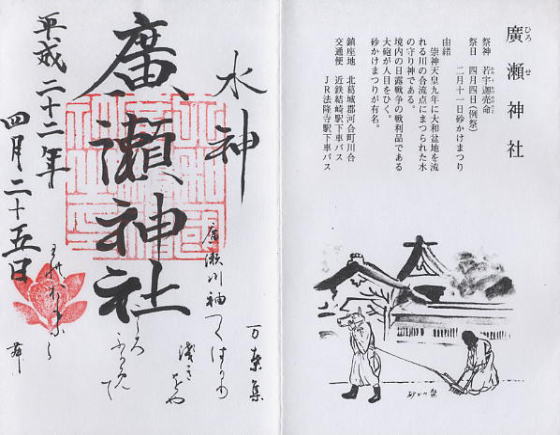 廣瀬神社
ひろせ
祭神 若宇迦売命
祭日 四月四日(例祭)
二月十一日砂かけまつり
由緒
崇神天皇九年に大和盆地を流
れる川の合流点にまつられた水
の守り神である。
境内の日露戦争の戦利品である
大砲が人目をひく。
砂かけまつりが有名。
鎮座地 北葛城郡河合町川合
交通便 近鉄結崎駅下車バス
JR法隆寺駅下車バス
水神
廣瀬神社
平成二十二年
四月二十五日
万葉集
廣瀬川袖つくばかり
浅きをや